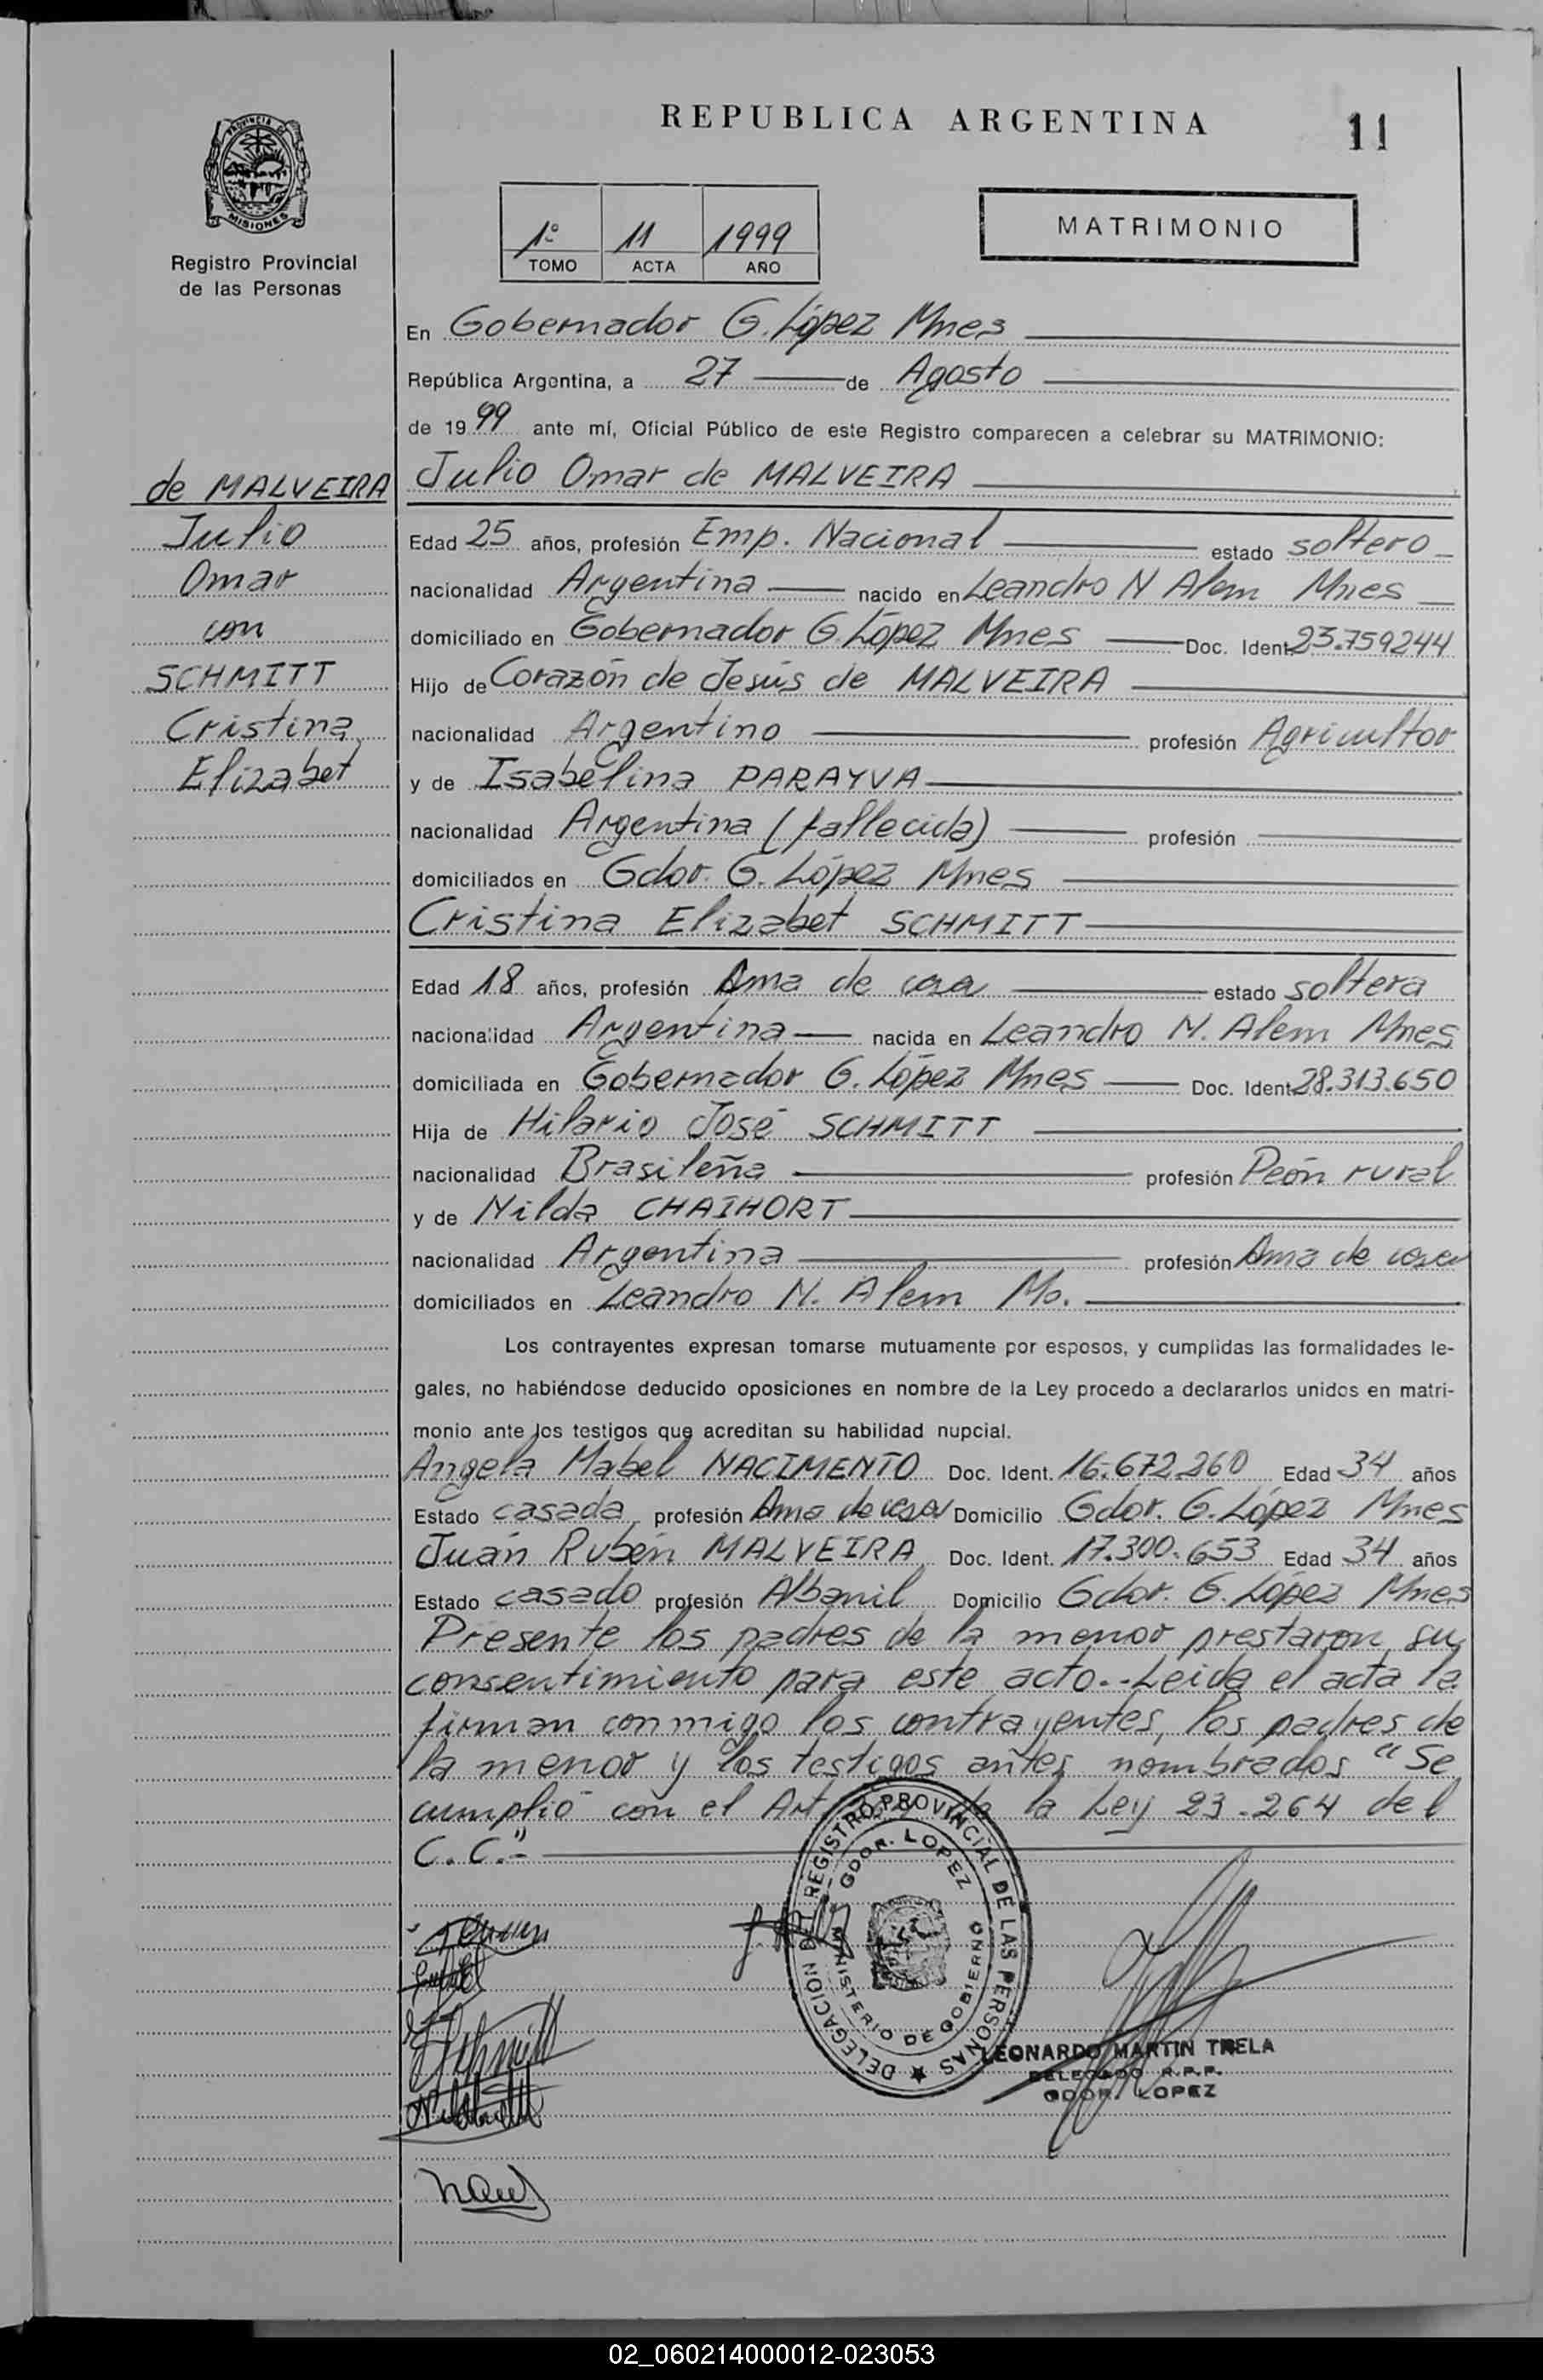 REPUBLICA ARGENTINA
11
PROVINCIA DE
MISIONES
Registro Provincial
de las Personas
1º 11 1999
TOMO ACTA AÑO
MATRIMONIO
En Gobernador G. López Mnes
República Argentina, a 27 de Agosto
de 1999 ante mí, Oficial Público de este Registro comparecen a celebrar su MATRIMONIO:
de MALVEIRA
Julio
Omar
con
SCHMITT
Cristina
Elizabet
Julio Omar de MALVEIRA
Edad 25 años, profesión Emp. Nacional estado soltero
nacionalidad Argentina nacido en Leandro N Alem Mnes
domiciliado en Gobernador G. López Mnes Doc. Ident. 23.759244
Hijo de Corazón de Jesús de MALVEIRA
nacionalidad Argentino profesión Agricultor
y de Isabelina PARAYVA
nacionalidad Argentina (fallecida) profesión
domiciliados en Gdor. G. López Mnes
Cristina Elizabet SCHMITT
Edad 18 años, profesión Ama de casa estado soltera
nacionalidad Argentina nacida en Leandro N. Alem Mnes
domiciliada en Gobernador G. López Mnes Doc. Ident. 28.313.650
Hija de Hilario José SCHMITT
nacionalidad Brasileña profesión Peón rural
y de Nilda CHAIHORT
nacionalidad Argentina profesión Ama de casa
domiciliados en Leandro N. Alem Mo.
Los contrayentes expresan tomarse mutuamente por esposos, y cumplidas las formalidades le-
gales, no habiéndose deducido oposiciones en nombre de la Ley procedo a declararlos unidos en matri-
monio ante los testigos que acreditan su habilidad nupcial.
Angela Mabel NACIMENTO Doc. Ident. 16.672.260 Edad 34 años
Estado casada profesión Ama de casa Domicilio Gdor. G. López Mnes
Juan Rubén MALVEIRA Doc. Ident. 17.300.653 Edad 34 años
Estado casado profesión Albanil Domicilio Gdor. G. López Mnes
Presente los padres de la menor prestaron su
consentimiento para este acto.-Leida el acta la
firman conmigo los contrayentes, los padres de
la menor y los testigos antes nombrados "Se
cumplió con el Art. de la Ley 23.264 del
C.C."-
DELEGACION DEL REGISTRO PROVINCIAL DE LAS PERSONAS
GDOR. LOPEZ
MINISTERIO DE GOBIERNO
LEONARDO MARTIN TRELA
DELEGADO R.P.P.
GDOR. LOPEZ
02_060214000012-023053